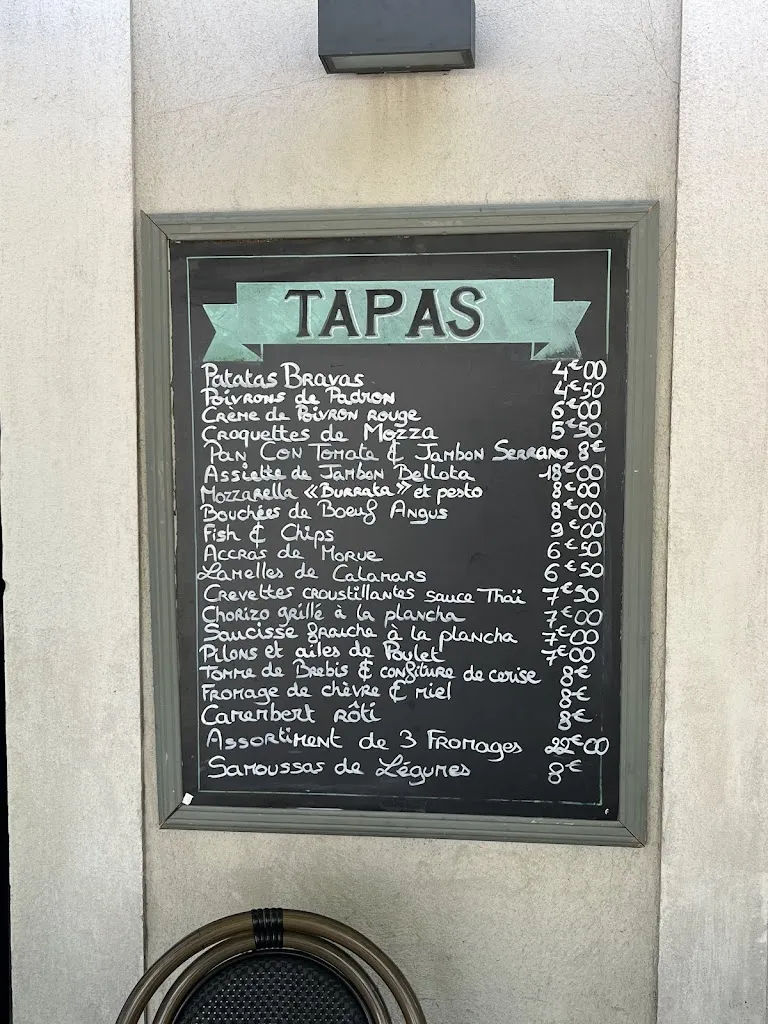 TAPAS
Patatas Bravas 4€00
Poivrons de Padron 4€50
Crème de Poivron rouge 6€00
Croquettes de Mozza 5€50
Pan Con Tomate & Jambon Serrano 8€
Assiette de Jambon Bellota 18€00
Mozzarella «Burrata» et pesto 8€00
Bouchées de Boeuf Angus 8€00
Fish & Chips 9€00
Accras de Morue 6€50
Lamelles de Calamars 6€50
Crevettes croustillantes sauce Thaï 7€50
Chorizo grillé à la plancha 7€00
Saucisse fraiche à la plancha 7€00
Pilons et ailes de Poulet 7€00
Tomme de Brebis & confiture de cerise 8€
Fromage de chèvre & miel 8€
Camembert rôti 8€
Assortiment de 3 Fromages 22€00
Samoussas de Légumes 8€